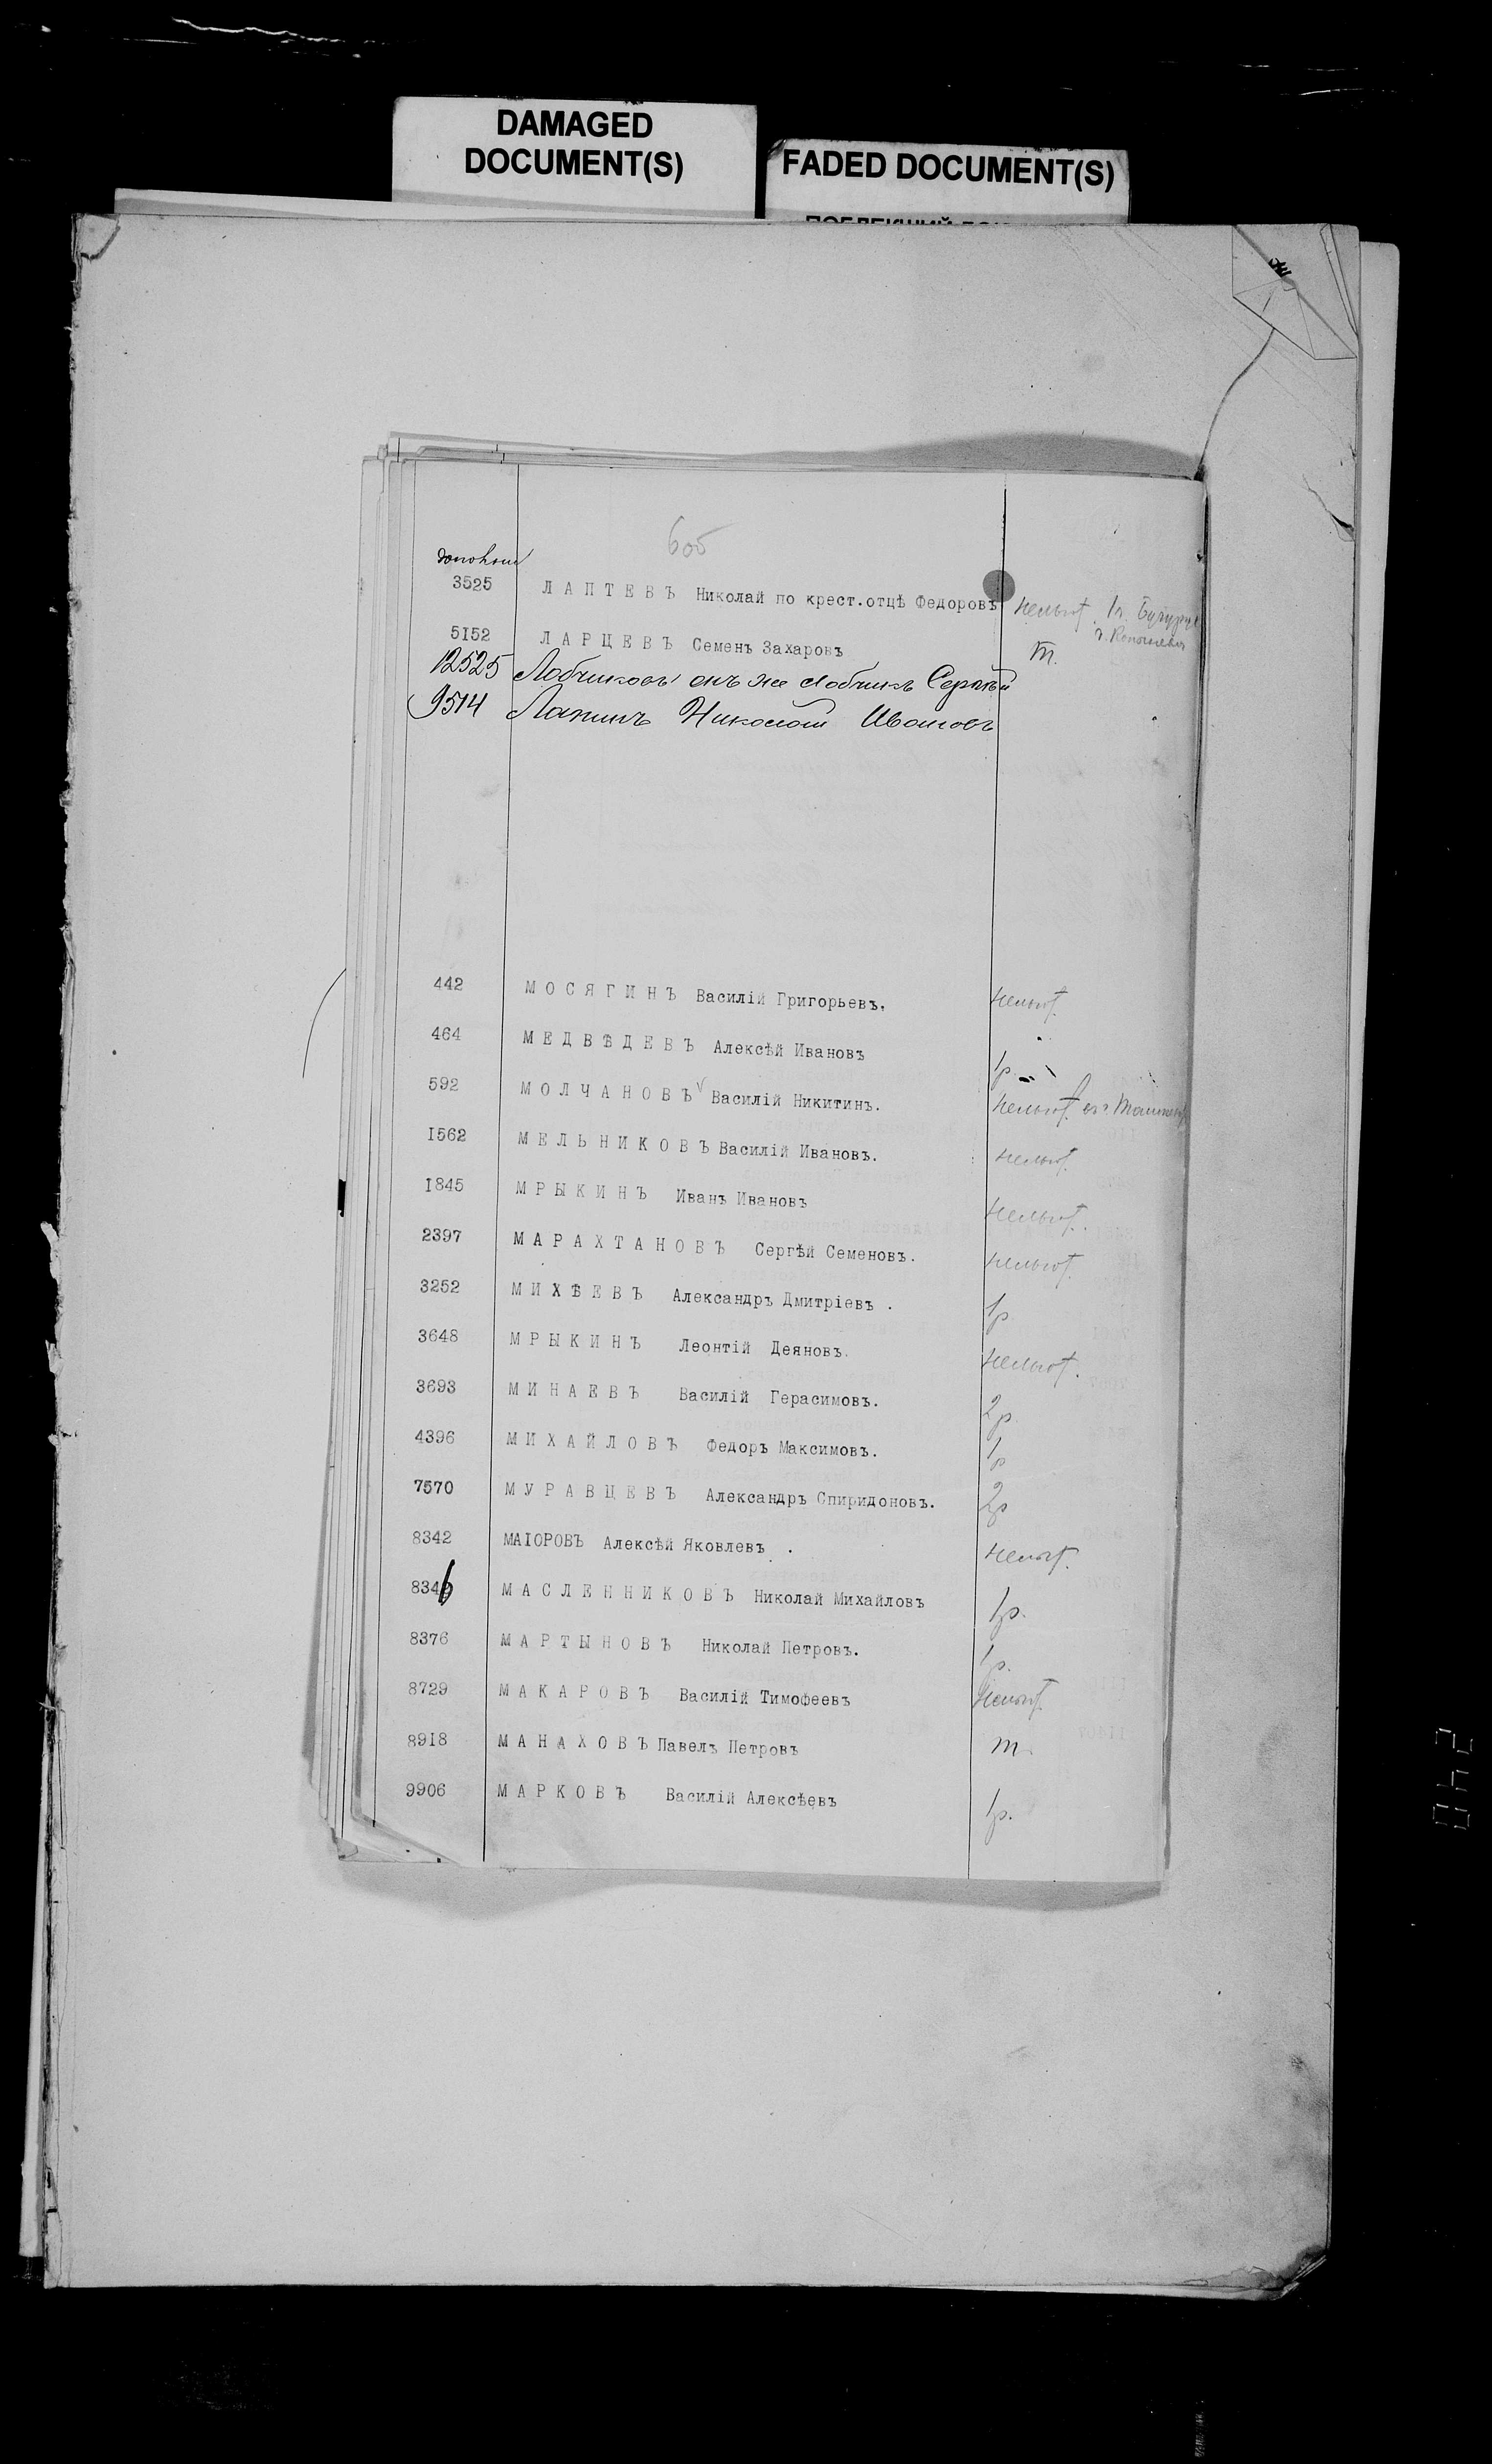 DAMAGED
DOCUMENT(S)
FADED DOCUMENT(S)
605
3525 ЛАПТЕВЪ Николай по крест.отцѣ Федоровъ
5152 ЛАРЦЕВЪ Семенъ Захаровъ т.
12525 Лобчиковъ онъ же Лобчикъ Сергѣй
9514 Лапинъ Николай Ивановъ
442 МОСЯГИНЪ Василій Григорьевъ.
464 МЕДВѢДЕВЪ Алексѣй Ивановъ 1р.
592 МОЛЧАНОВЪ Василій Никитинъ.
1562 МЕЛЬНИКОВЪ Василій Ивановъ.
1845 МРЫКИНЪ Иванъ Ивановъ
2397 МАРАХТАНОВЪ Сергѣй Семеновъ.
3252 МИХѢЕВЪ Александръ Дмитріевъ . 1р
3648 МРЫКИНЪ Леонтій Деяновъ.
3693 МИНАЕВЪ Василій Герасимовъ. 2р
4396 МИХАЙЛОВЪ Федоръ Максимовъ. 1р
7570 МУРАВЦЕВЪ Александръ Спиридоновъ. 2р
8342 МАІОРОВЪ Алексѣй Яковлевъ .
8346 МАСЛЕННИКОВЪ Николай Михайловъ 1р.
8376 МАРТЫНОВЪ Николай Петровъ. 1р.
8729 МАКАРОВЪ Василій Тимофеевъ
8918 МАНАХОВЪ Павелъ Петровъ т.
9906 МАРКОВЪ Василій Алексѣевъ 1р.
240